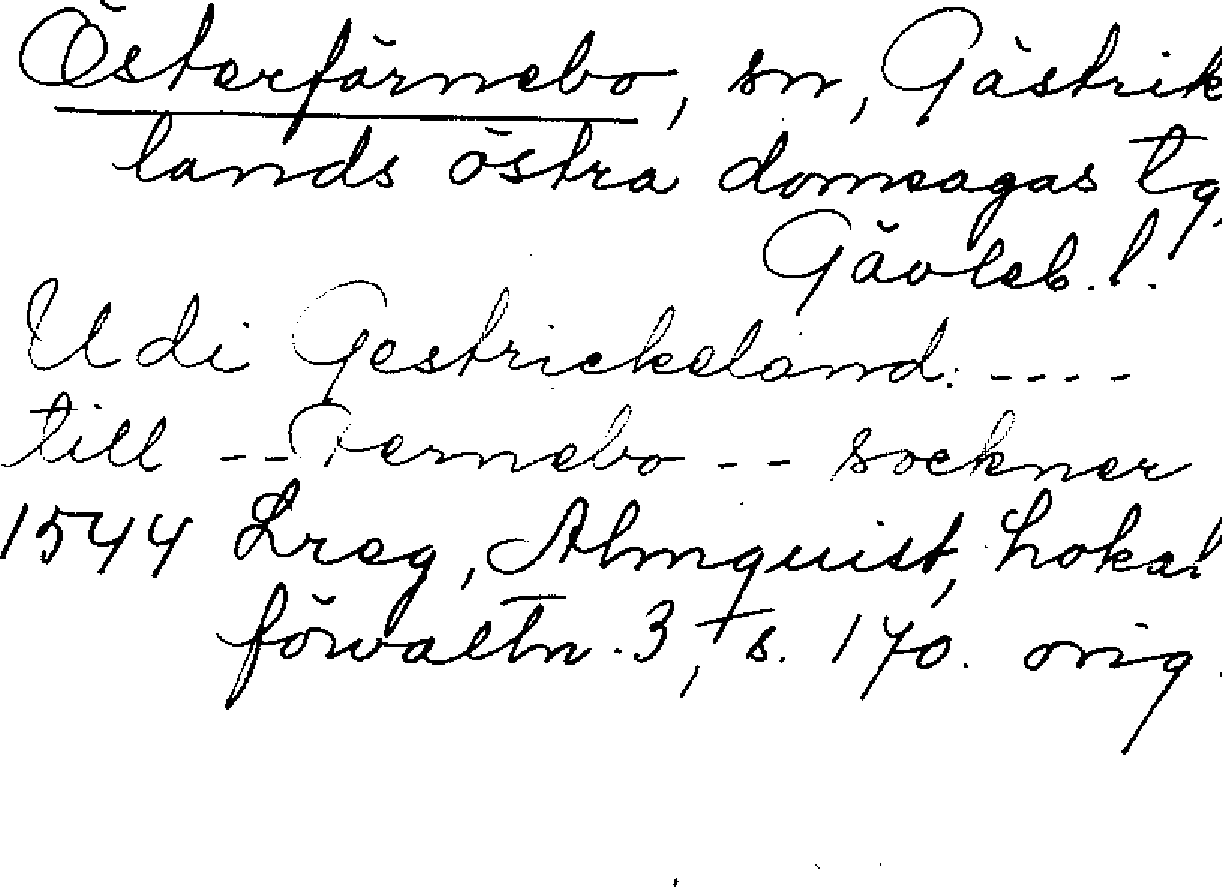 Österfärnebo, sn, Gästrik
lands östra domsagas tg,
Gävleb. l.
Udi Gestrickeland: ----
till -- Fernebo -- sockner
1544 Lreg, Almquist, Lokal
förvaltn. 3, s. 170. orig.